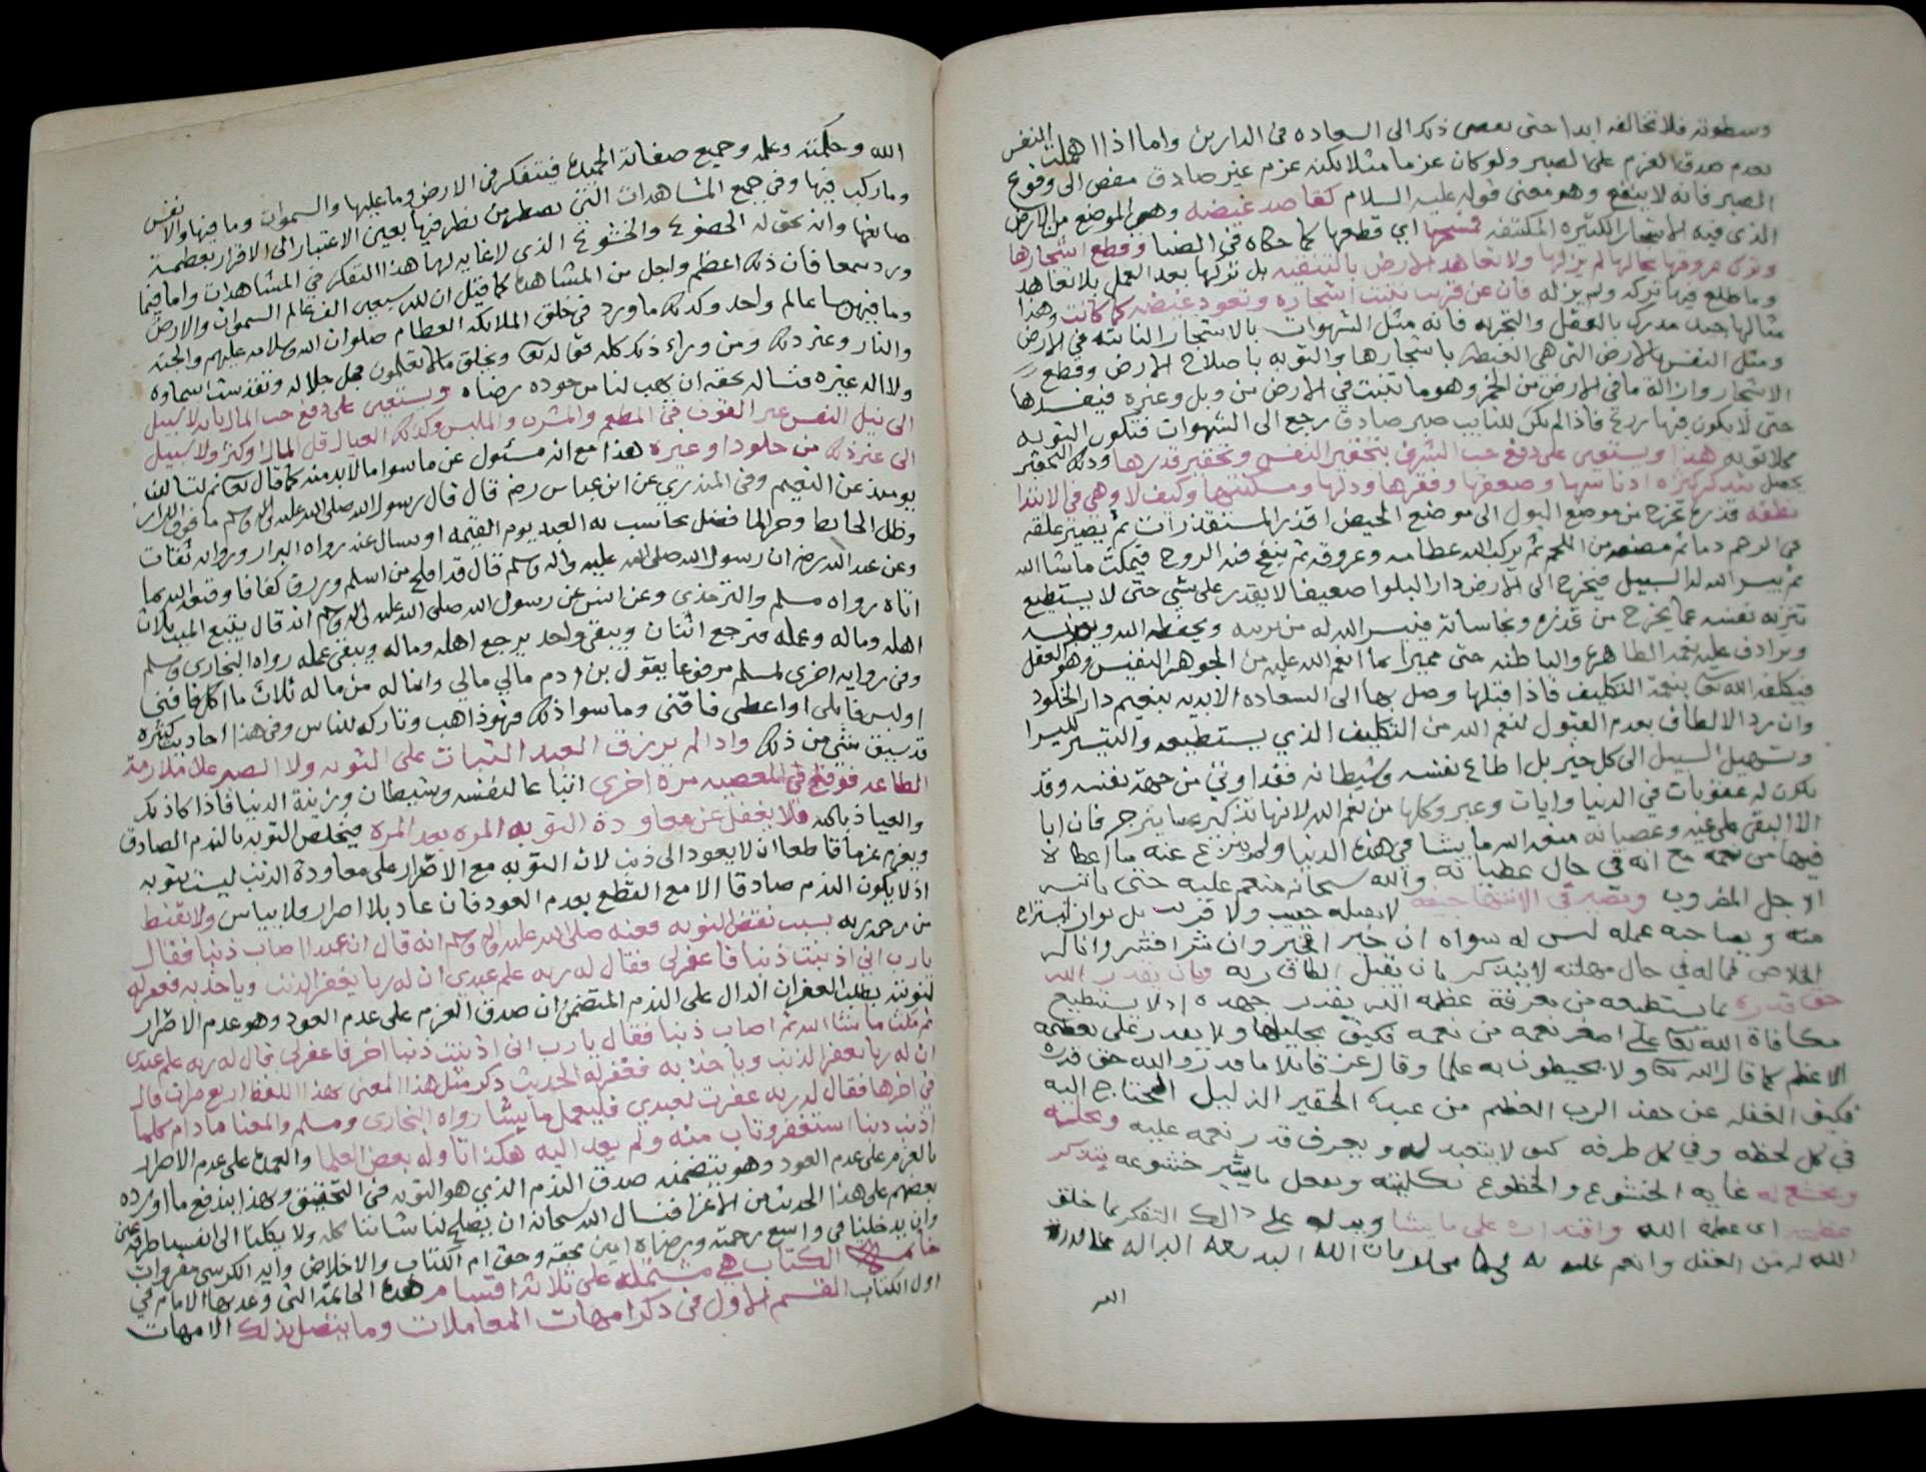 وسطوته فلا تخالفه ابدا حتى يفضي ذلك الى السعاده في الدارين واما اذا اهملت النفس
بعدم صدق العزم على الصبر ولو كان عزما مثلا لكنه عزم غير صادق مفض الى وقوع
الصبر فانه لا ينفع وهو معنى قوله عليه السلام كقاصد غيضه وهي الموضع من الارض
الذي فيه الاشجار الكثيره الملتفه اي قطعها كما حكاه في الضيا وقطع اشجارها
وترك عروقها بحالها لم يزلها ولا تعاهد الارض بالتنقيه بل تركها بعد العمل بلا تعاهد
وما طلع فيها تركه ولم يزله فان عن قريب تنبت اشجاره وتعود غيضه كما كانت وهذا
مثالها جيد مدرك بالعقل والتجربه فانه مثل الشهوات بالاشجار النابته في الارض
ومثل النفس بالارض التي هي الغيضه باشجارها والتوبه باصلاح الارض وقطع
الاشجار وازالة ما في الارض من وهو ما تنبت في الارض من وبل وغيره فيفسدها
حتى لا يكون فيها فاذا لم يكن للتايب صبر صادق رجع الى الشهوات فتكون التوبه
كلا توبه هذا ويستعين على دفع حب الشرف بتحقير النفس وتحقير قدرها وذلك التحقير
يحصل بتذكر كثرة ادناسها وضعفها وفقرها وذلها ومسكنتها وكيف لا وهي في الابتدا
نطفه قذرة تخرج من موضع البول الى موضع الحيض اقذر المستقذرات ثم يصير علقه
في الرحم دما ثم مضغه من اللحم ثم يركب الله عظامه وعروقه ثم ينفخ فيه الروح فيمكث ما شا الله
ثم ييسر الله له السبيل فيخرج الى الارض دار البلوا ضعيفا لا يقدر على شي حتى لا يستطيع
تنزيه نفسه عما يخرج من قذره ونجاساته فييسر الله له من يربيه ويحفظه الله
ويرادف عليه نعمه الظاهرة والباطنه حتى مميزا بما انعم الله عليه من الجوهر النفيس وهو العقل
فيكلفه الله تعالى بنعمة التكليف فاذا قبلها وصل بها الى السعاده الابديه بنعيم دار الخلود
وان رد الالطاف بعدم القبول لنعم الله من التكليف الذي يستطيعه والتيسير لليسرا
وتسهيل السبيل الى كل خير بل اطاع نفسه وشيطانه فقد اوتي من جهة نفسه وقد
يكون له عقوبات في الدنيا وايات وعبر وكلها من نعم الله لانها تذكير عسا ينزجر فان ابا
الا البقي على غيه وعصيانه متعه الله ما يشا في هذه الدنيا ولم ينزع عنه ما اعطاه
فيها من نعمه مع انه في حال عصيانه والله سبحانه منعم عليه حتى ياتيه
الاجل المضروب وتصير في الانتها جيفه لا يقبله حبيب ولا قريب بل
منه ويصاحبه عمله ليس له سواه ان خير افخير وان شرا فشر وانا له
الخلاص فما له في حال مهلته لا يتذكر بان يقبل الطاف ربه وبان يقدر الله
حق قدره بما يستطيعه من معرفة عظمه الله بقدر جهده اذ لا يستطيع
مكافاة الله تعالى على اصغر نعمه من نعمه فكيف بجليلها ولا يقدر على
الاعظم كما قال الله تعالى ولا يحيطون به علما وقال عز قايلا ما قدروا الله حق قدره
فكيف الغفله عن هذا الرب العظيم من عبده الحقير الذليل المحتاج اليه
في كل لحظه وفي كل طرفه كيف لا يتعبد له ويعرف قدر نعمه عليه
ويخشع له غايه الخشوع والخضوع بكليته ويفعل ما خشوعه بتذكر
عظمته اي عظمة الله واقتداره على ما يشا ويدله على ذلك التفكر بما خلق
الله له من العقل وانعم عليه به
الله وحكمته وعلمه وجميع صفاته الحميده فيتفكر في الارض وما عليها والسموات وما فيها والانفس
وما ركب فيها وفي جميع المشاهدات التي تضطر من نظر فيها بعين الاعتبار الى الاقرار بعظمة
صانعها وانه يحق له الخضوع والخشوع الذي لا غايه لها هذا التفكر في المشاهدات واما فيما
ورد سمعا فان ذلك اعظم واجل من المشاهده كما قيل ان لله سبعين الف عالم السموات والارض
وما فيهن وما بينهن عالم واحد وكذلك ما ورد في خلق الملائكه العظام صلوات الله وسلامه عليهم والجنه
والنار وغير ذلك ومن وراء ذلك كله قوله تعالى ويخلق ما لا تعلمون فجل جلاله وتقدست اسماوه
ولا اله غيره فنساله بحقه ان يهب لنا من جوده رضاه ويستعين على دفع حب المال بان لا سبيل
الى نيل النفس غير القوت في المطعم والمشرب والملبس وكذلك العيال قل المال او كثر ولا سبيل
الى غير ذلك من خلود او غيره هذا مع انه مسئول عن ما سوا ما لا بد منه كما قال تعالى ثم لتسالن
يومئذ عن النعيم وفي المنذري عن ابن عباس رض قال قال رسول الله صلى الله عليه واله وسلم ما فوق الازار
وظل الحايط وجر الما فضل يحاسب به العبد يوم القيمه او يسال عنه رواه البزار ورواته ثقات
وعن عبد الله رض ان رسول الله صلى الله عليه واله وسلم قال قد افلح من اسلم ورزق كفافا وقنعه الله بما
اتاه رواه مسلم والترمذي وعن انس عن رسول الله صلى الله عليه واله وسلم انه قال يتبع الميت ثلاث
اهله وماله وعمله فيرجع اثنان ويبقى واحد يرجع اهله وماله ويبقى عمله رواه البخاري ومسلم
وفي روايه اخرى لمسلم مرفوعا يقول بن ادم مالي مالي وانما له من ماله ثلاث ما اكل فافنى
او لبس فابلى او اعطى فاقتنى وما سوا ذلك فهو ذاهب وتاركه للناس وفي هذا احاديث كثيره
قد سبق شي من ذلك واذا لم يرزق العبد الثبات على التوبه ولا الصبر على ملازمة
الطاعه فوقع في المعصيه مرة اخرى اتباعا لنفسه وشيطان وزينة الدنيا فاذا كان ذلك
والعياذ بالله فلا يغفل عن معاودة التوبه المره بعد المره فيخلص التوبه بالندم الصادق
ويعزم عزما قاطعا ان لا يعود الى ذنب لان التوبه مع الاضرار على معاودة الذنب ليست بتوبه
اذ لا يكون الندم صادقا الا مع القطع بعدم العود فان عاد بلا اصرار فلا ييياس ولا يقنط
من رحمة ربه بسبب نقض التوبه فعنه صلى الله عليه واله وسلم انه قال ان عبدا اصاب ذنبا فقال
يارب اني اذنبت ذنبا فاغفر لي فقال له ربه علم عبدي ان له ربا يغفر الذنب وياخذ به فغفر له
لتوبته بطلب الغفران الدال على الندم المتضمن ان صدق العزم على عدم العود وهو عدم الاضرار
ثم مكث ما شا الله ثم اصاب ذنبا فقال يارب اني اذنبت ذنبا اخر فاغفر لي قال له ربه علم عبدي
ان له ربا يغفر الذنب وياخذ به فغفر له الحديث ذكر مثل هذا المعنى بهذا اللفظ اربع مرات قال
في اخرها فقال له ربه غفرت لعبدي فليعمل ما يشا رواه البخاري ومسلم والمعنا ما دام كلما
اذنب ذنبا استغفر وتاب منه ولم يعد اليه هكذا تاوله بعض العلما والعمدة على عدم الاصرار
بالعزم على عدم العود وهو يتضمنه صدق الندم الذي هو التوبه في التحقيق وبهذا يندفع ما اورده
بعضهم على هذا الحديث من الاغرا فنسال الله سبحانه ان يصلح لنا شاننا كله ولا يكلنا الى انفسنا طرفة عين
وان يدخلنا في واسع رحمته ورضاه امين بحقه وحق ام الكتاب والاخلاص واية الكرسي
خاتمة الكتاب هي مشتمله على ثلاثة اقسام هذه الخاتمة التي وعد بها الامام في
اول الكتاب القسم الاول في ذكر امهات المعاملات وما يتصل بذلك الامهات